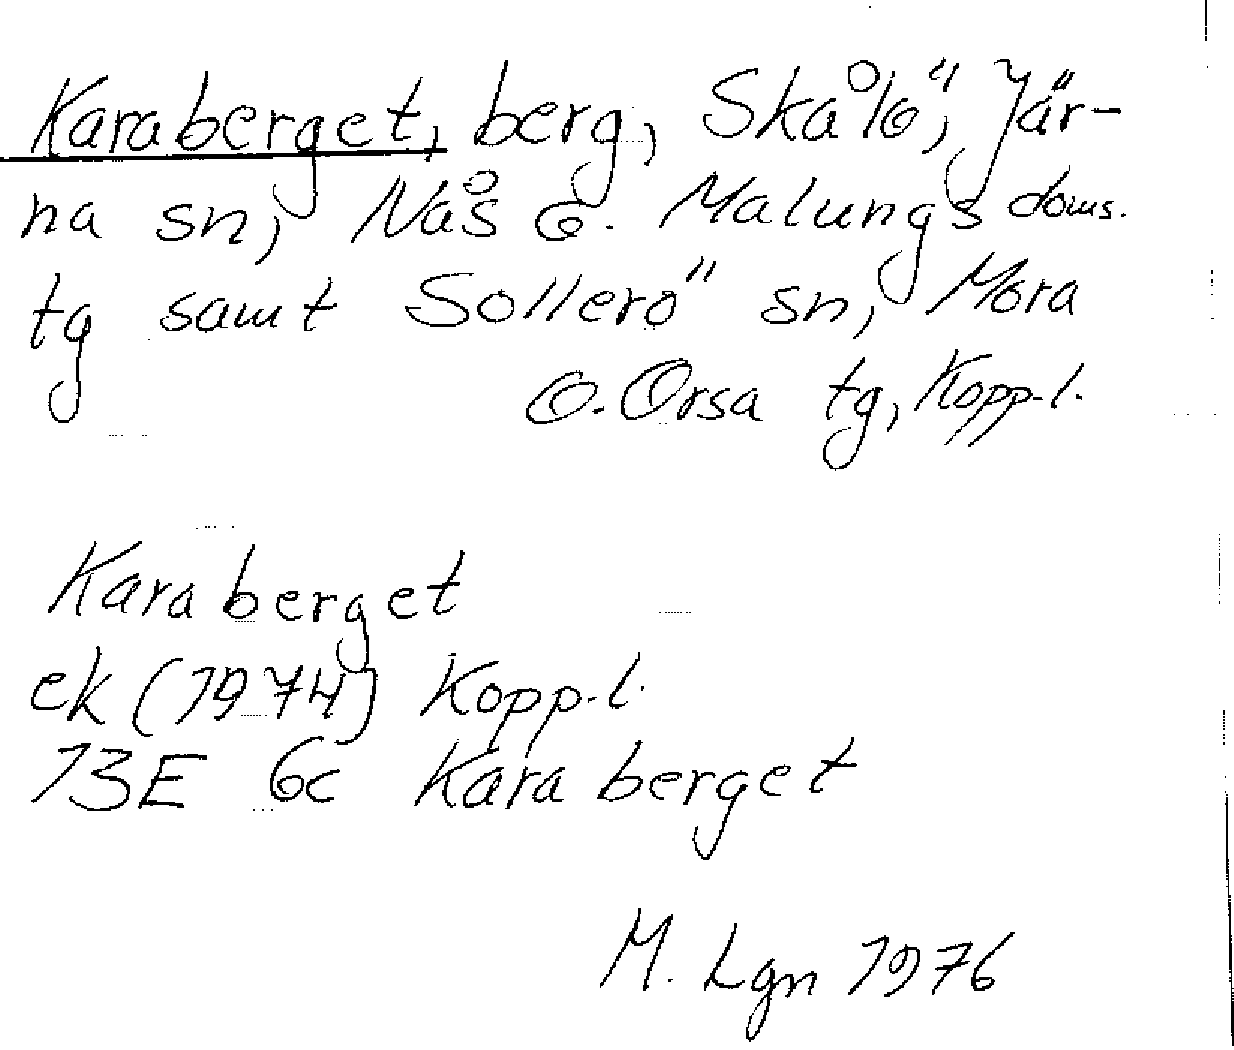 Karaberget, berg, Skålö, Jär-
na sn, Nås o. Malungs doms.
tg samt Sollerö sn, Mora
o. Orsa tg, Kopp.l.
Karaberget
ek (1974) Kopp.l.
13E 6c Karaberget
M. Lgn 1976